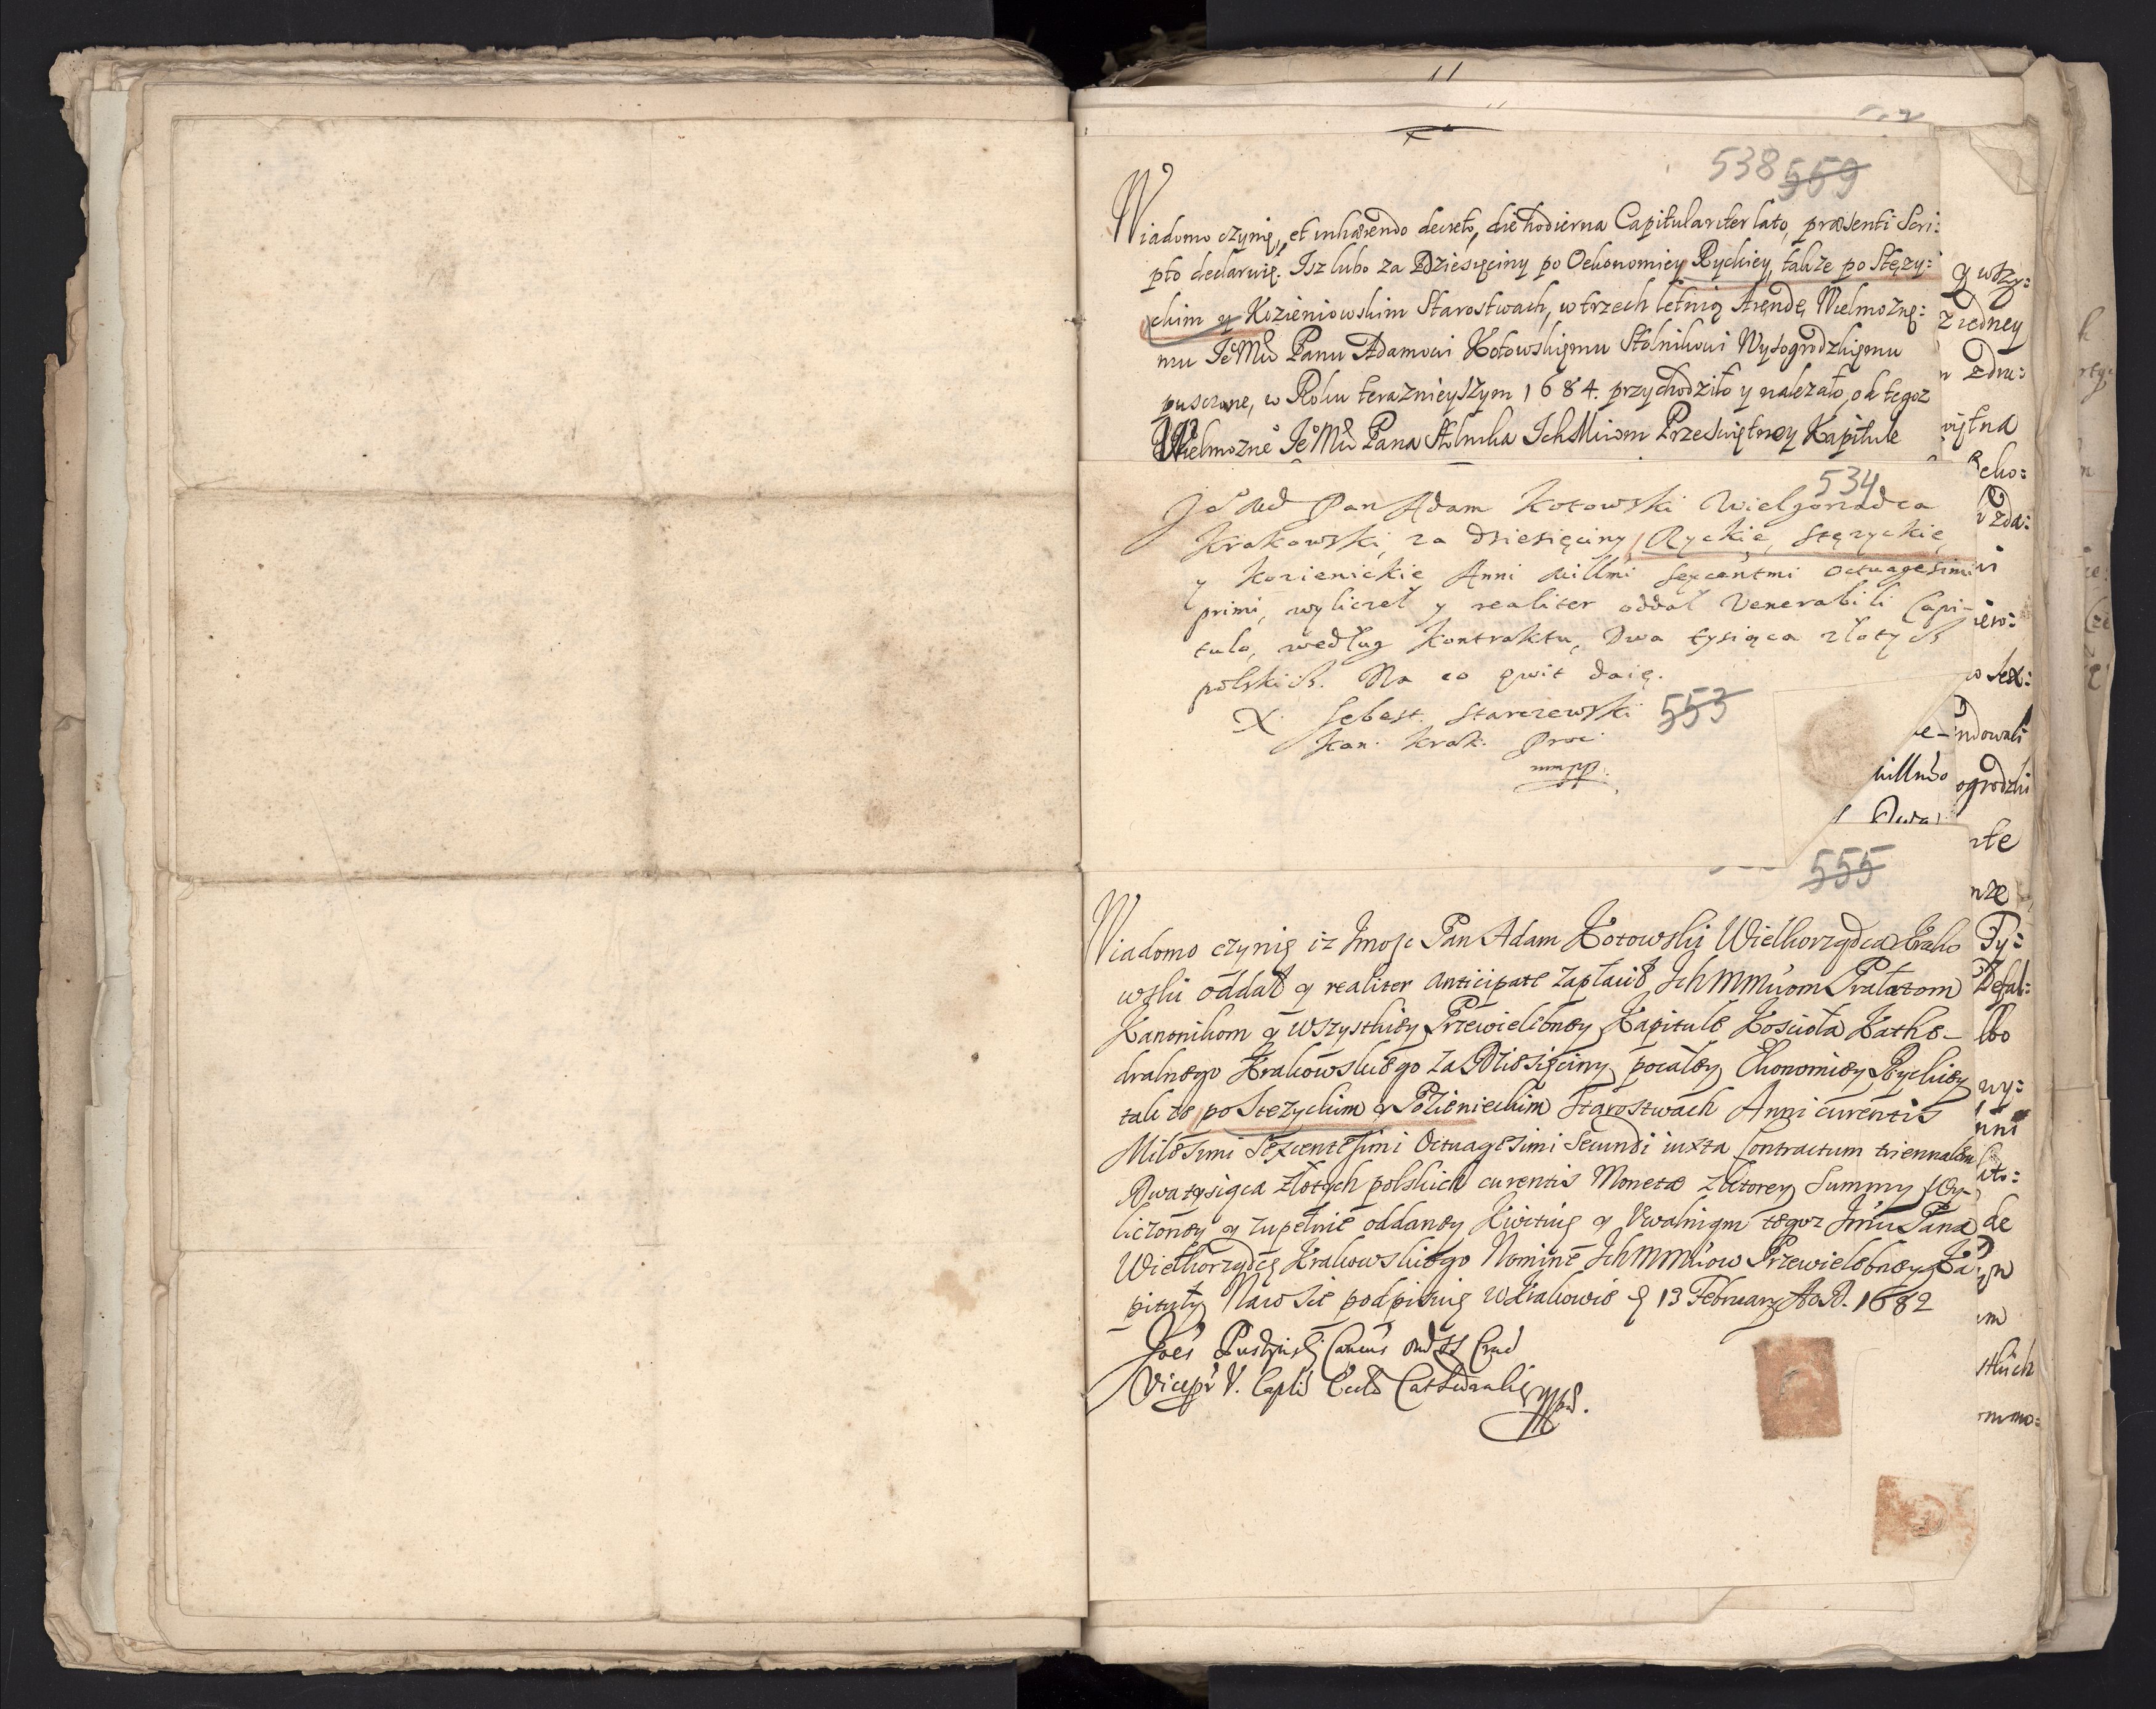 11
538 559
Wiadomo czynię, et inhærendo decreto, die hodierna Capitulariter lato, præsenti Scri:
pto declaruię. Isz lubo za Dziesięciny po Oekonomiey Ryckiey, także po Stęzy:
ckim y Kozieniowskim Starostwach, w trzech letnią Aręndę Wielmożnę:
mu Je Mci Panu Adamowi Kotowskięmu Stolnikowi Wyszogrodzkięmu
pusczone, w Roku teraznieyszym 1684. przychodziło y należało, od tegoz
Wielmozne Je Mci Pana Stolnika Ich Mciom Przeswiętney Kapitule
534
Je Mcd Pan Adam Kotowski Wielgorządca
Krakowski, za dziesięciny Ryckie, Stęzyckie,
y Kozienickie Anni Millmi Sexcentmi Octuagesimi
primi, wyliczeł y realiter oddał Venerabili Capi-
tulo, według Kontraktu, Dwa tysiąca złotych
polskich. Na co qwit daię.
X. Sebest. Starczewski 553
Kan. Krak. Proc.
mmpp.
555
Wiadomo czynię iz Jmośc Pan Adam Kotowski Wielkorządca Krako
wski oddał y realiter anticipate zapłacił Ich Mmciom Prałatom
Kanonikom y wszystkiey Przewielebney Kapitule Koscioła Kathe-
dralnego Krakowskiego za Dziesięciny pocałey Ekonomiey Ryckiey
tak ze po Stezyckim y Kozienieckim Starostwach Anni curentis
Milesimi Sexcentesimi Octuagesimi Secundi iuxta Contractum triennalem
Dwa tysiąca złotych polskich curentis Monetæ z ktorey Summy wy-
liczoney y zupełnie oddaney Kwituię y Uwalniąm tegoz Jmci Pana
Wielkorządcę Krakowskiego Nomine Ich Mmciow Przewielebney Ka
pituły Naco sie podpisuię w Krakowie d 13 February A D. 1682
Vicepr V. Capli Eccl Cathedralis mpd.
y wszy:
z iedney
zdru:
więtna
Reko:
zda:
ndowali
ogrodzki
Ty:
Defal:
lbo
wy:
de
stkich